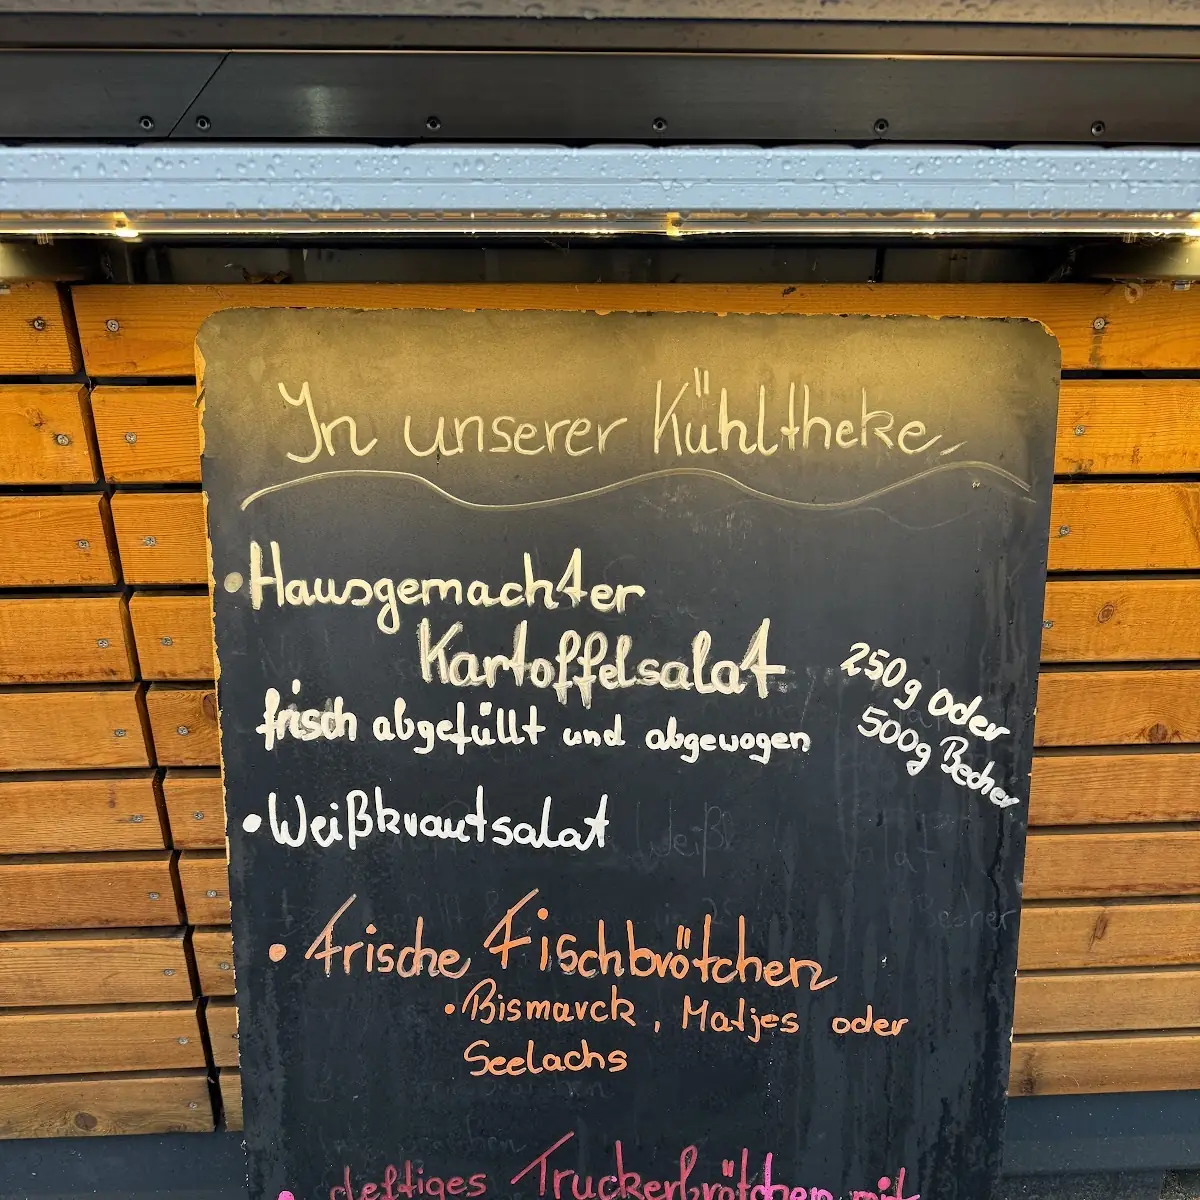 In unserer Kühltheke
• Hausgemachter
Kartoffelsalat
frisch abgefüllt und abgewogen
250g oder
500g Becher
• Weißkrautsalat
• Frische Fischbrötchen
• Bismarck, Matjes oder
Seelachs
• deftiges Truckerbrötchen mit